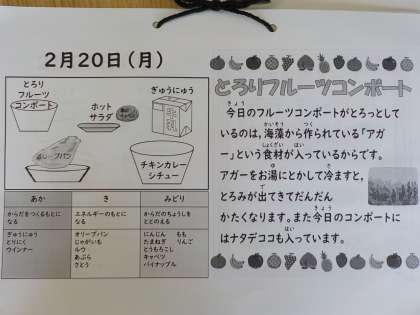 2月20日(月)
とろり
フルーツ
コンポート
ホット
サラダ
ぎゅうにゅう
チキンカレー
シチュー
あか き みどり
からだをつくるもとになる
エネルギーのもとになる
からだのちょうしをととのえる
ぎゅうにゅう
とりにく
ウインナー
オリーブパン
じゃがいも
ルウ
あぶら
さとう
にんじん もも
たまねぎ りんご
とうもろこし
キャベツ
パイナップル
とろりフルーツコンポート
今日のフルーツコンポートがとろっとして
いるのは、海藻から作られている「アガ
ー」という食材が入っているからです。
アガーをお湯にとかして冷ますと、
とろみが出てきてだんだん
かたくなります。また今日のコンポートに
はナタデココも入っています。